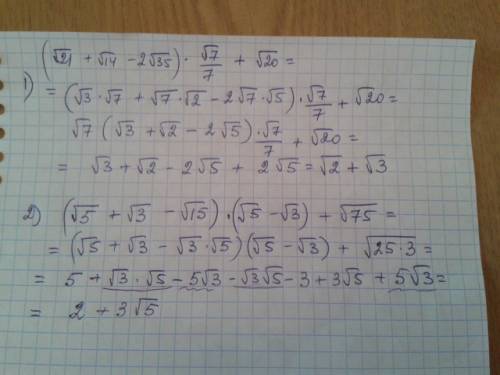 (√21 + √14 − 2√35) · √7/7 + √20 =
1) = (√3 · √7 + √7 · √2 − 2√7 · √5) · √7/7 + √20 =
√7 (√3 + √2 − 2√5) · √7/7 + √20 =
= √3 + √2 − 2√5 + 2√5 = √2 + √3
2) (√5 + √3 − √15) · (√5 − √3) + √75 =
= (√5 + √3 − √3 · √5)(√5 − √3) + √25·3 =
= 5 + √3 · √5 − 5√3 − √3√5 − 3 + 3√5 + 5√3 =
= 2 + 3√5